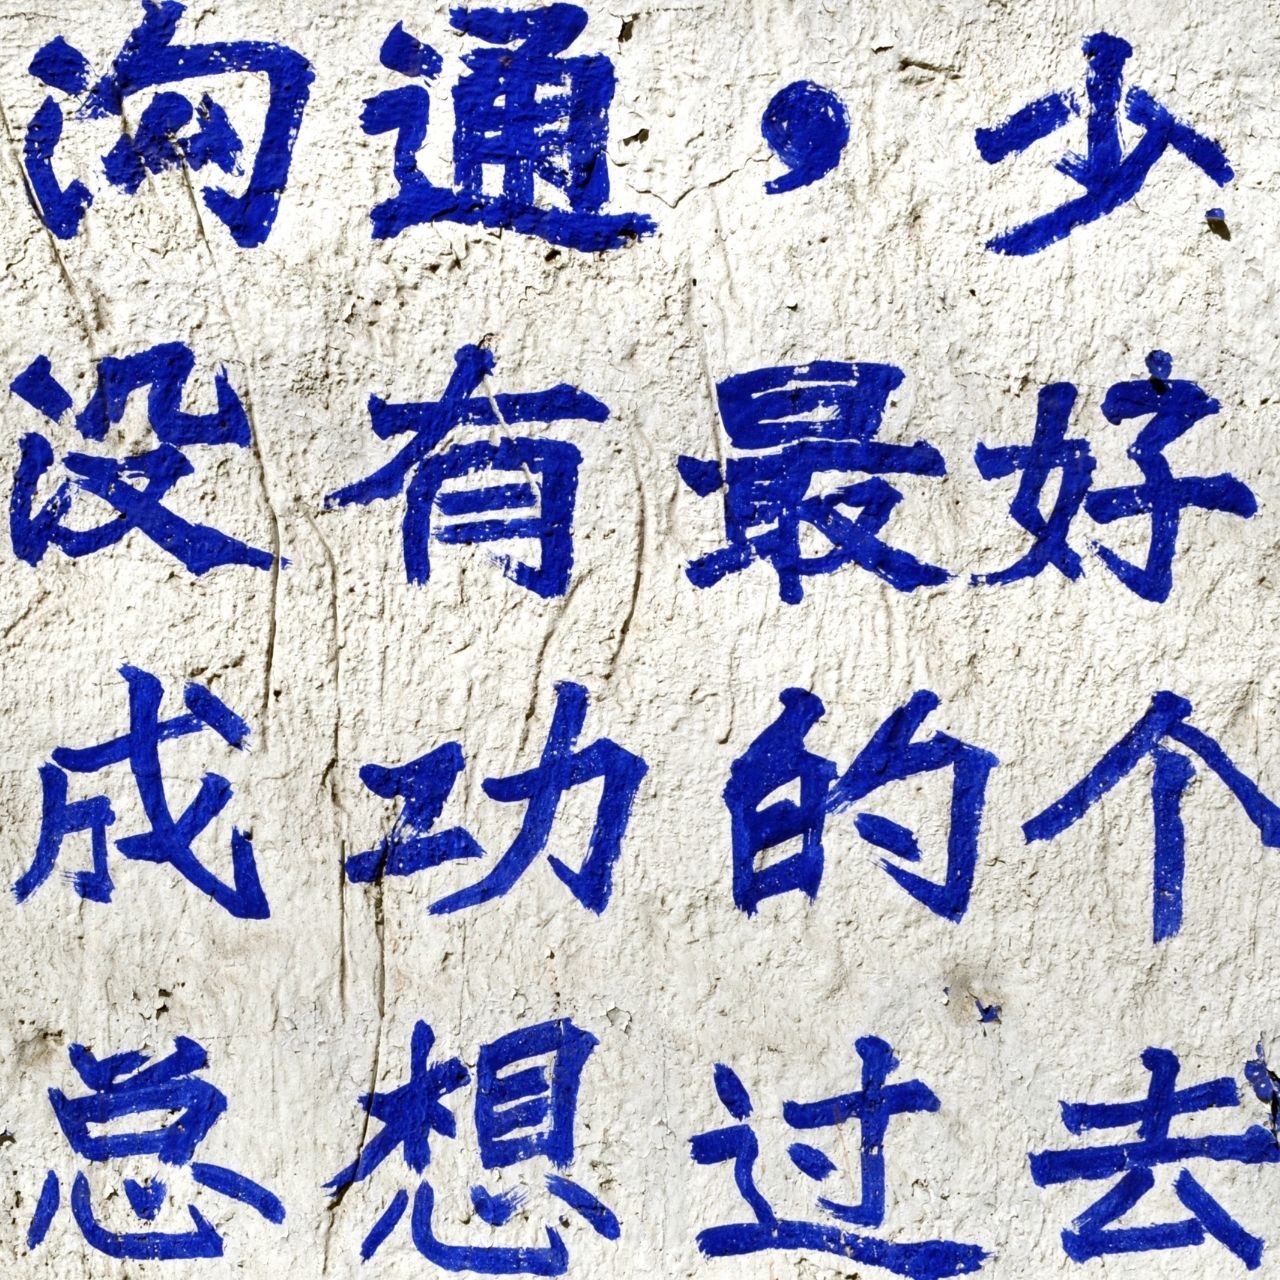 沟通，少
没有最好
成功的个
总想过去